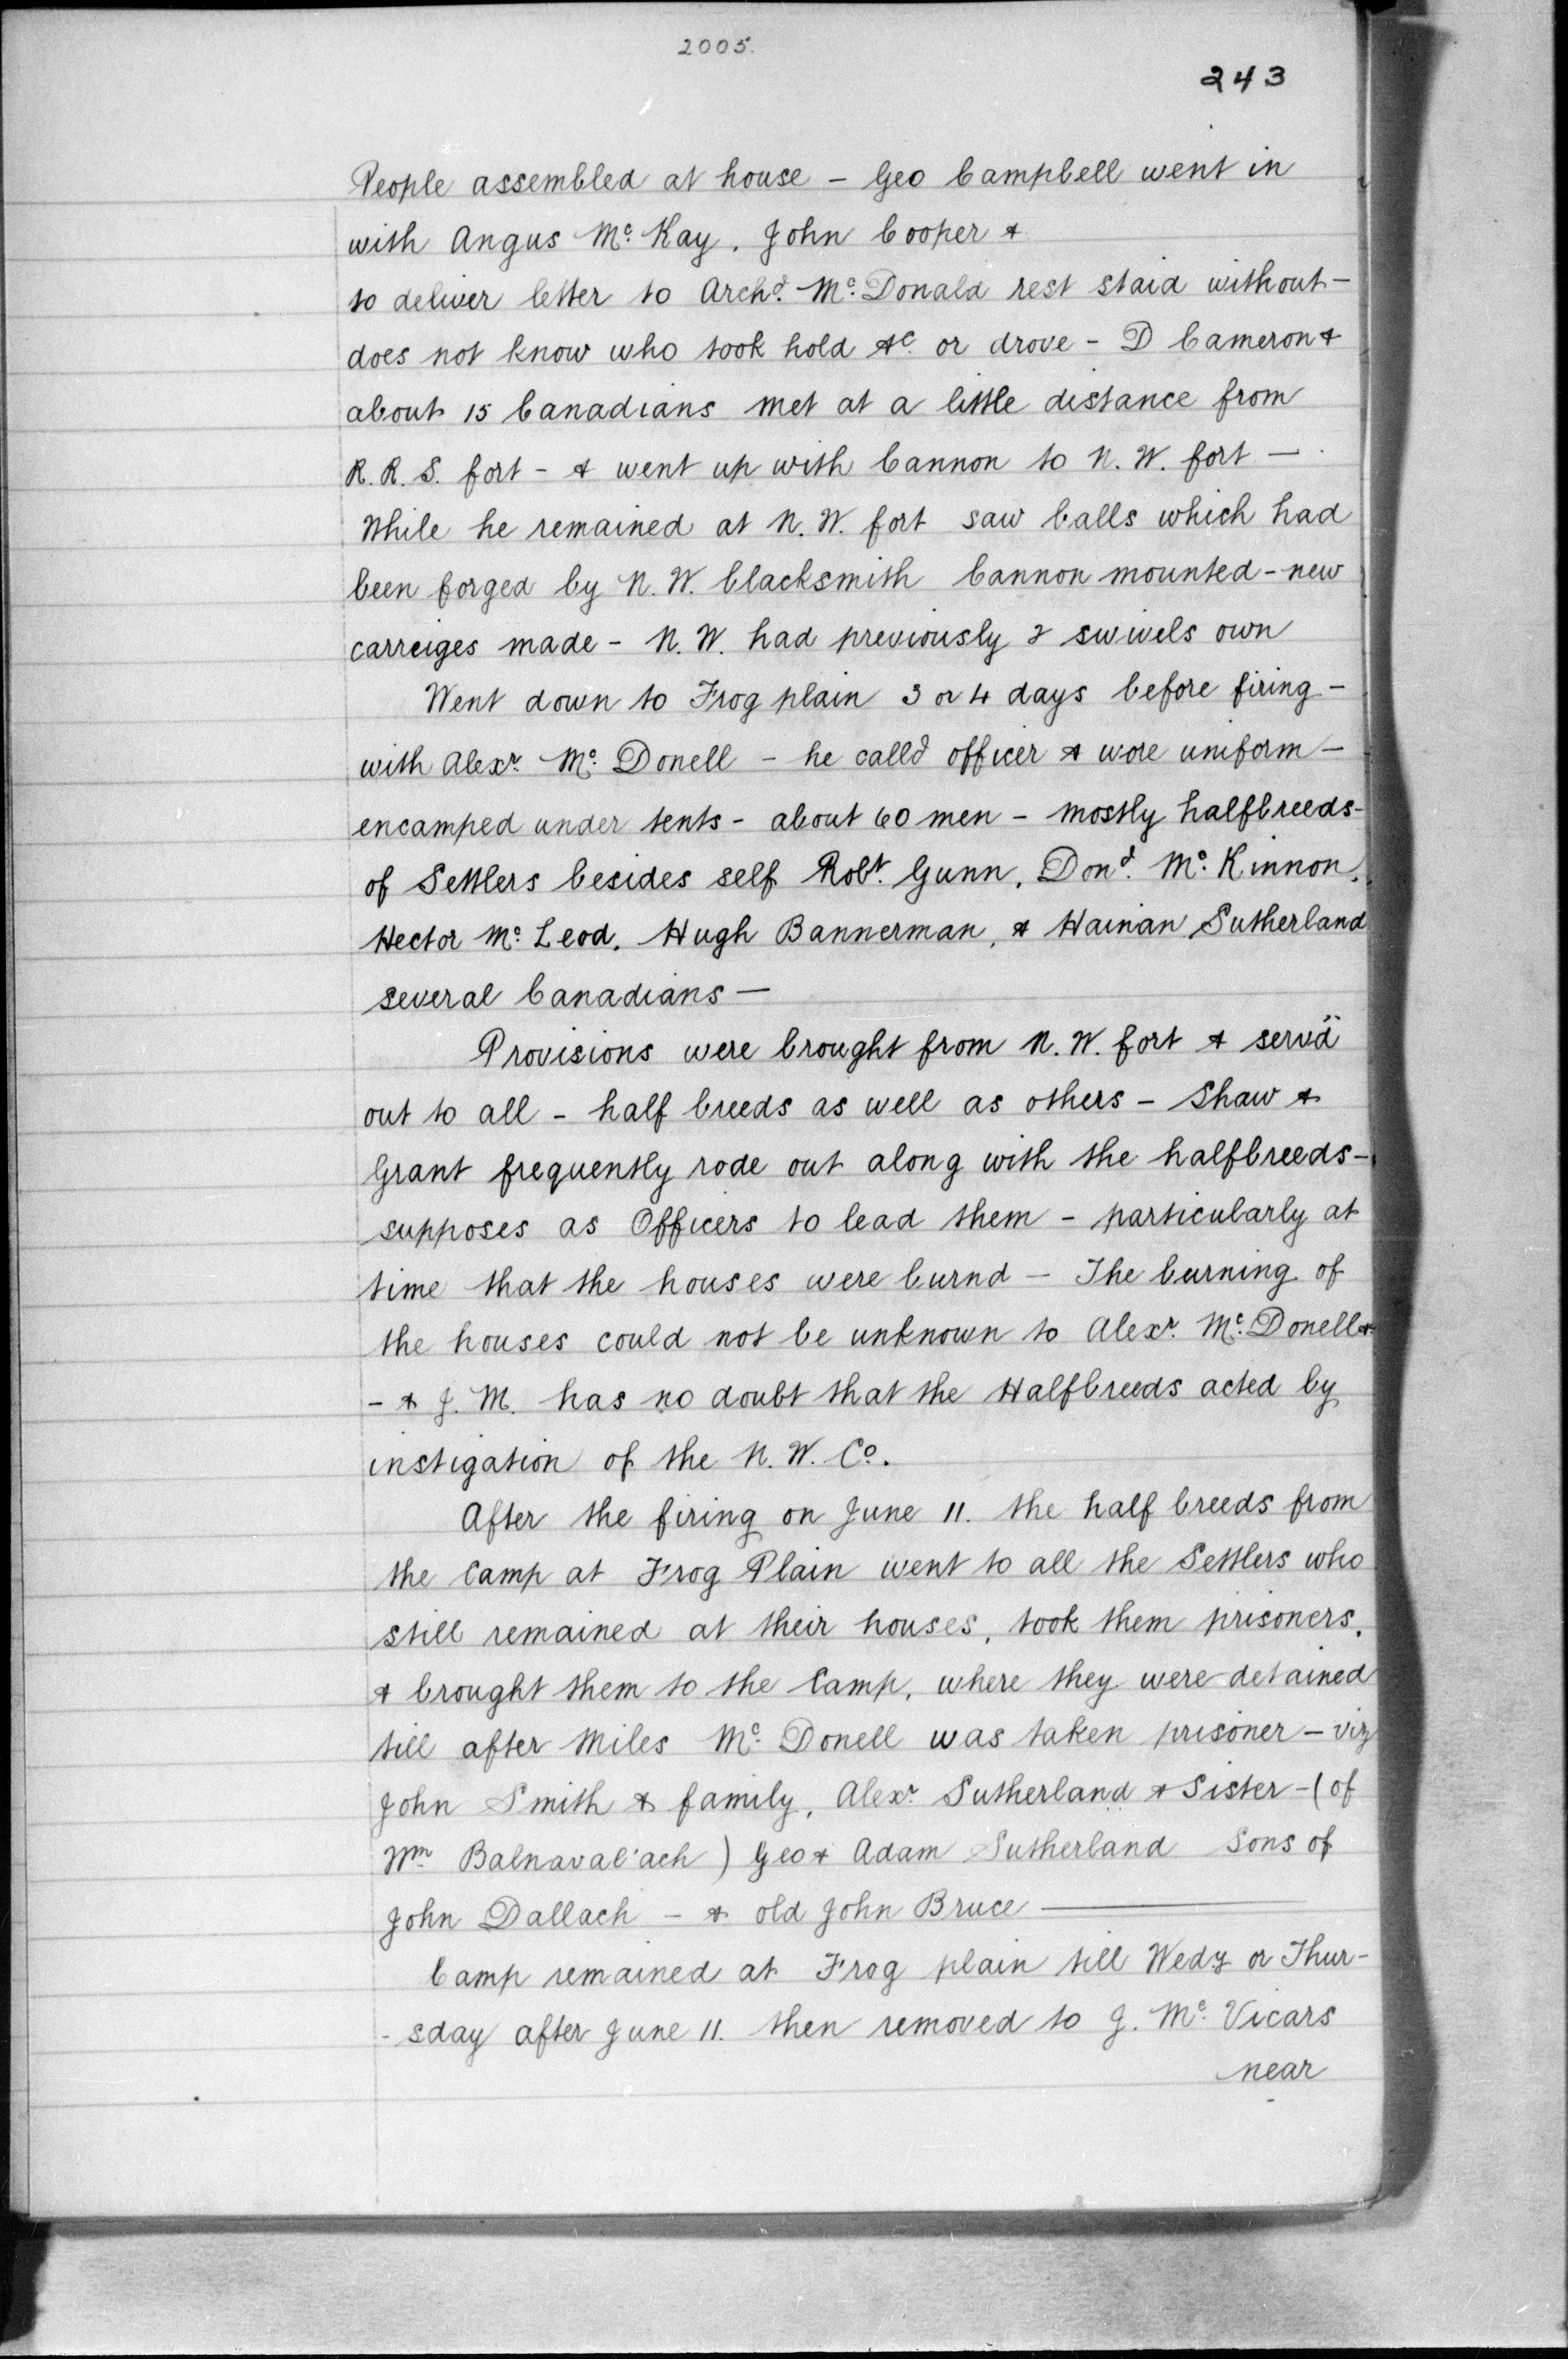 2005.
243
People assembled at house – Geo Campbell went in
with Angus Mc. Kay, John Cooper &
to deliver letter to Archd. Mc. Donald rest staid without –
does not know who took hold &c. or drove – D Cameron &
about 15 Canadians met at a little distance from
R. R. S. fort – & went up with Cannon to N. W. fort –
While he remained at N. W. fort saw balls which had
been forged by N. W. blacksmith Cannon mounted – new
carreiges made – N. W. had previously 2 swivels own
Went down to Frog plain 3 or 4 days before firing –
with Alexr. Mc. Donell – he calld officer & wore uniform –
encamped under tents – about 60 men – mostly halfbreeds –
of Settlers besides self Robt. Gunn, Dond. Mc. Kinnon,
Hector Mc. Leod, Hugh Bannerman, & Haman Sutherland
several Canadians –
Provisions were brought from N. W. fort & servd
out to all – half breeds as well as others – Shaw &
Grant frequently rode out along with the halfbreeds –
supposes as Officers to lead them – particularly at
time that the houses were burnd – The burning of
the houses could not be unknown to Alexr. Mc. Donell &
– & J. M. has no doubt that the Halfbreeds acted by
instigation of the N. W. Co.
After the firing on June 11. the half breeds from
the Camp at Frog Plain went to all the Settlers who
still remained at their houses, took them prisoners,
& brought them to the Camp, where they were detained
till after Miles Mc. Donell was taken prisoner – viz
John Smith & family, Alexr. Sutherland & Sister – (of
Wm Balnaval'ach) Geo & Adam Sutherland Sons of
John Dallach – & old John Bruce –
Camp remained at Frog plain till Wedy or Thur-
-sday after June 11. then removed to J. Mc. Vicars
near